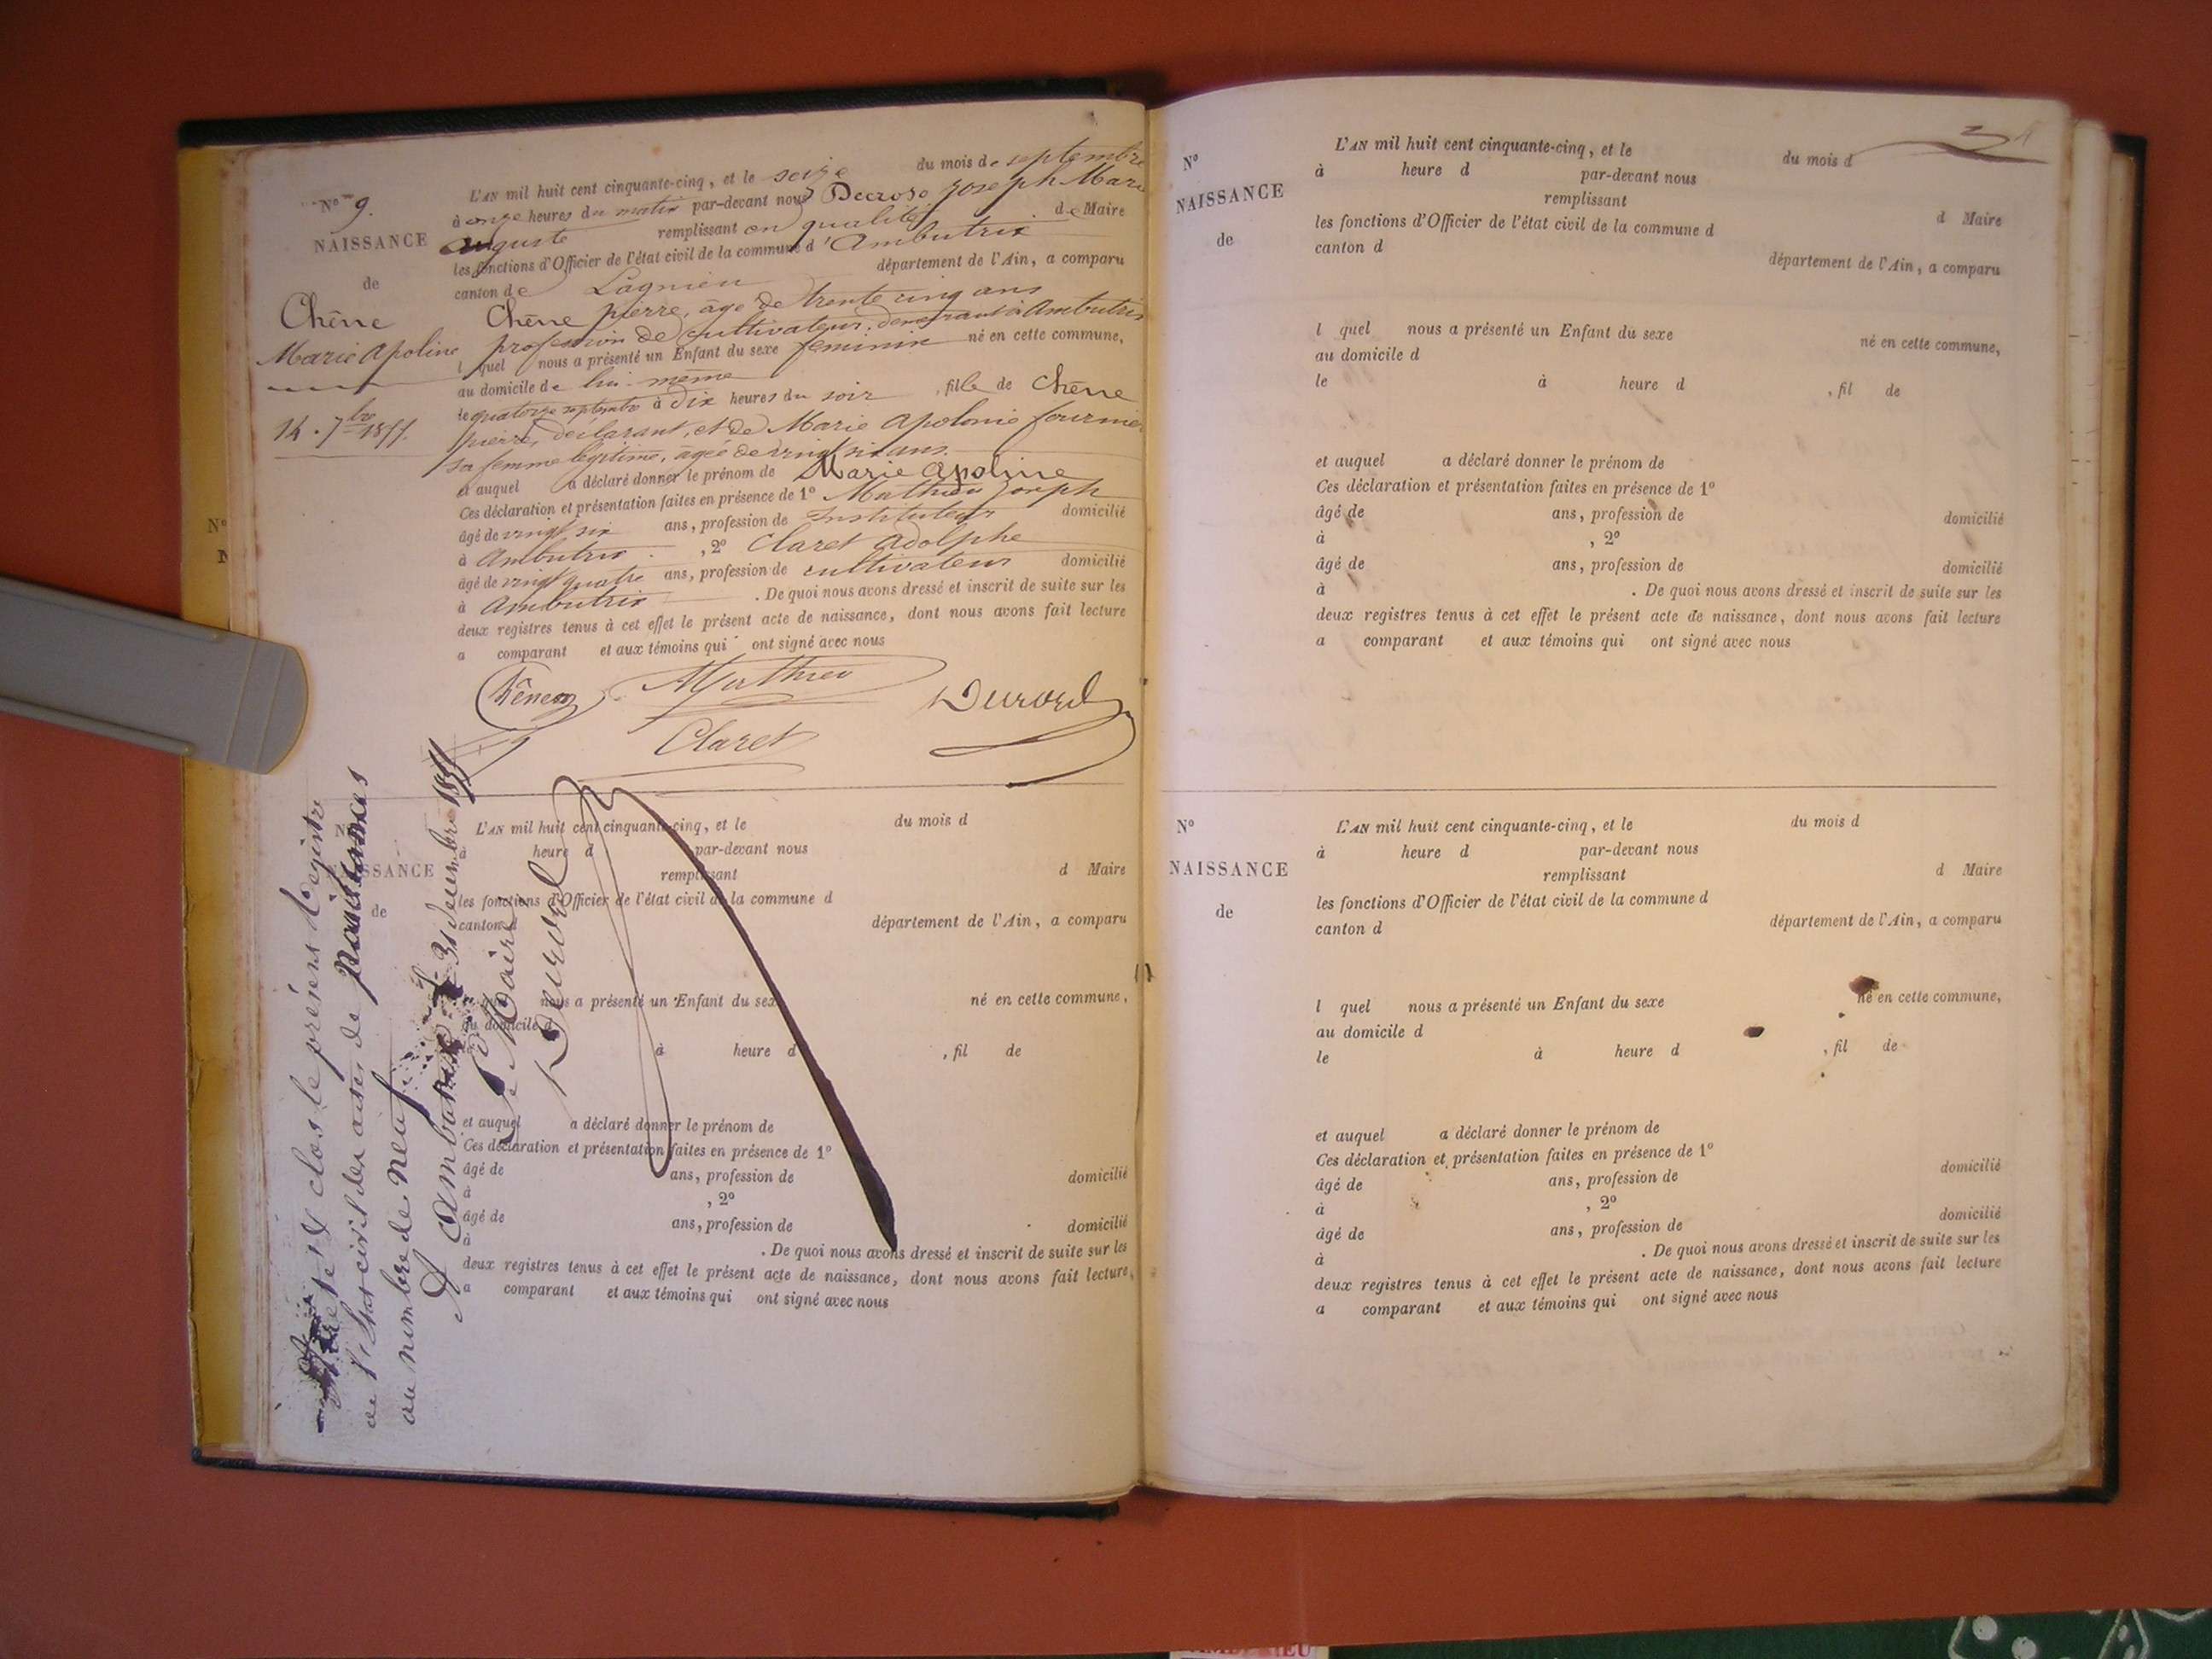 N° 9.
NAISSANCE
de
Chêne
Marie Apoline
14 . 7bre 1855.
L'AN mil huit cent cinquante-cinq, et le seize du mois de septembre
à onze heures du matin par-devant nous Decroso Joseph Marie
auguste remplissant en qualité de Maire
les fonctions d'Officier de l'état civil de la commune d'Ambutrix
canton de Lagnieu département de l'Ain, a comparu
Chêne pierre, âgé de trente cinq ans
profession de cultivateur, demeurant à Ambutrix
l quel nous a présenté un Enfant du sexe feminin né en cette commune,
au domicile de lui-même
le quatorze septembre à dix heures du soir , fille de Chêne
pierre, déclarant, et de Marie Apolonie fournier
sa femme légitime, âgée de vingt six ans.
et auquel a déclaré donner le prénom de Marie Apoline
Ces déclaration et présentation faites en présence de 1° Mathieu Joseph
âgé de vingt six ans, profession de Instituteur domicilié
à Ambutrix , 2° Claret Adolphe
âgé de vingt quatre ans, profession de cultivateur domicilié
à Ambutrix . De quoi nous avons dressé et inscrit de suite sur les
deux registres tenus à cet effet le présent acte de naissance, dont nous avons fait lecture
a comparant et aux témoins qui ont signé avec nous
Chêne Mathieu
Claret
N°
NAISSANCE
de
L'AN mil huit cent cinquante-cinq, et le du mois d
à heure d par-devant nous
remplissant d Maire
les fonctions d'Officier de l'état civil de la commune d
canton d département de l'Ain, a comparu
nous a présenté un Enfant du sexe né en cette commune,
au domicile d
à heure d , fil de
et auquel a déclaré donner le prénom de
Ces déclaration et présentation faites en présence de 1°
âgé de ans, profession de domicilié
à , 2°
âgé de ans, profession de domicilié
à . De quoi nous avons dressé et inscrit de suite sur les
deux registres tenus à cet effet le présent acte de naissance, dont nous avons fait lecture,
a comparant et aux témoins qui ont signé avec nous
Arrêté & clos le présent Registre
de l'état civil des actes de naissances
au nombre de neuf.
A Ambutrix le 31 décembre 1855
Le Maire
N°
NAISSANCE
de
L'AN mil huit cent cinquante-cinq, et le du mois d
à heure d par-devant nous
remplissant d Maire
les fonctions d'Officier de l'état civil de la commune d
canton d département de l'Ain, a comparu
l quel nous a présenté un Enfant du sexe né en cette commune,
au domicile d
le à heure d , fil de
et auquel a déclaré donner le prénom de
Ces déclaration et présentation faites en présence de 1°
âgé de ans, profession de domicilié
à , 2°
âgé de ans, profession de domicilié
à . De quoi nous avons dressé et inscrit de suite sur les
deux registres tenus à cet effet le présent acte de naissance, dont nous avons fait lecture
a comparant et aux témoins qui ont signé avec nous
N°
NAISSANCE
de
L'AN mil huit cent cinquante-cinq, et le du mois d
à heure d par-devant nous
remplissant d Maire
les fonctions d'Officier de l'état civil de la commune d
canton d département de l'Ain, a comparu
l quel nous a présenté un Enfant du sexe né en cette commune,
au domicile d
le à heure d , fil de
et auquel a déclaré donner le prénom de
Ces déclaration et présentation faites en présence de 1°
âgé de ans, profession de domicilié
à , 2°
âgé de ans, profession de domicilié
à . De quoi nous avons dressé et inscrit de suite sur les
deux registres tenus à cet effet le présent acte de naissance, dont nous avons fait lecture
a comparant et aux témoins qui ont signé avec nous